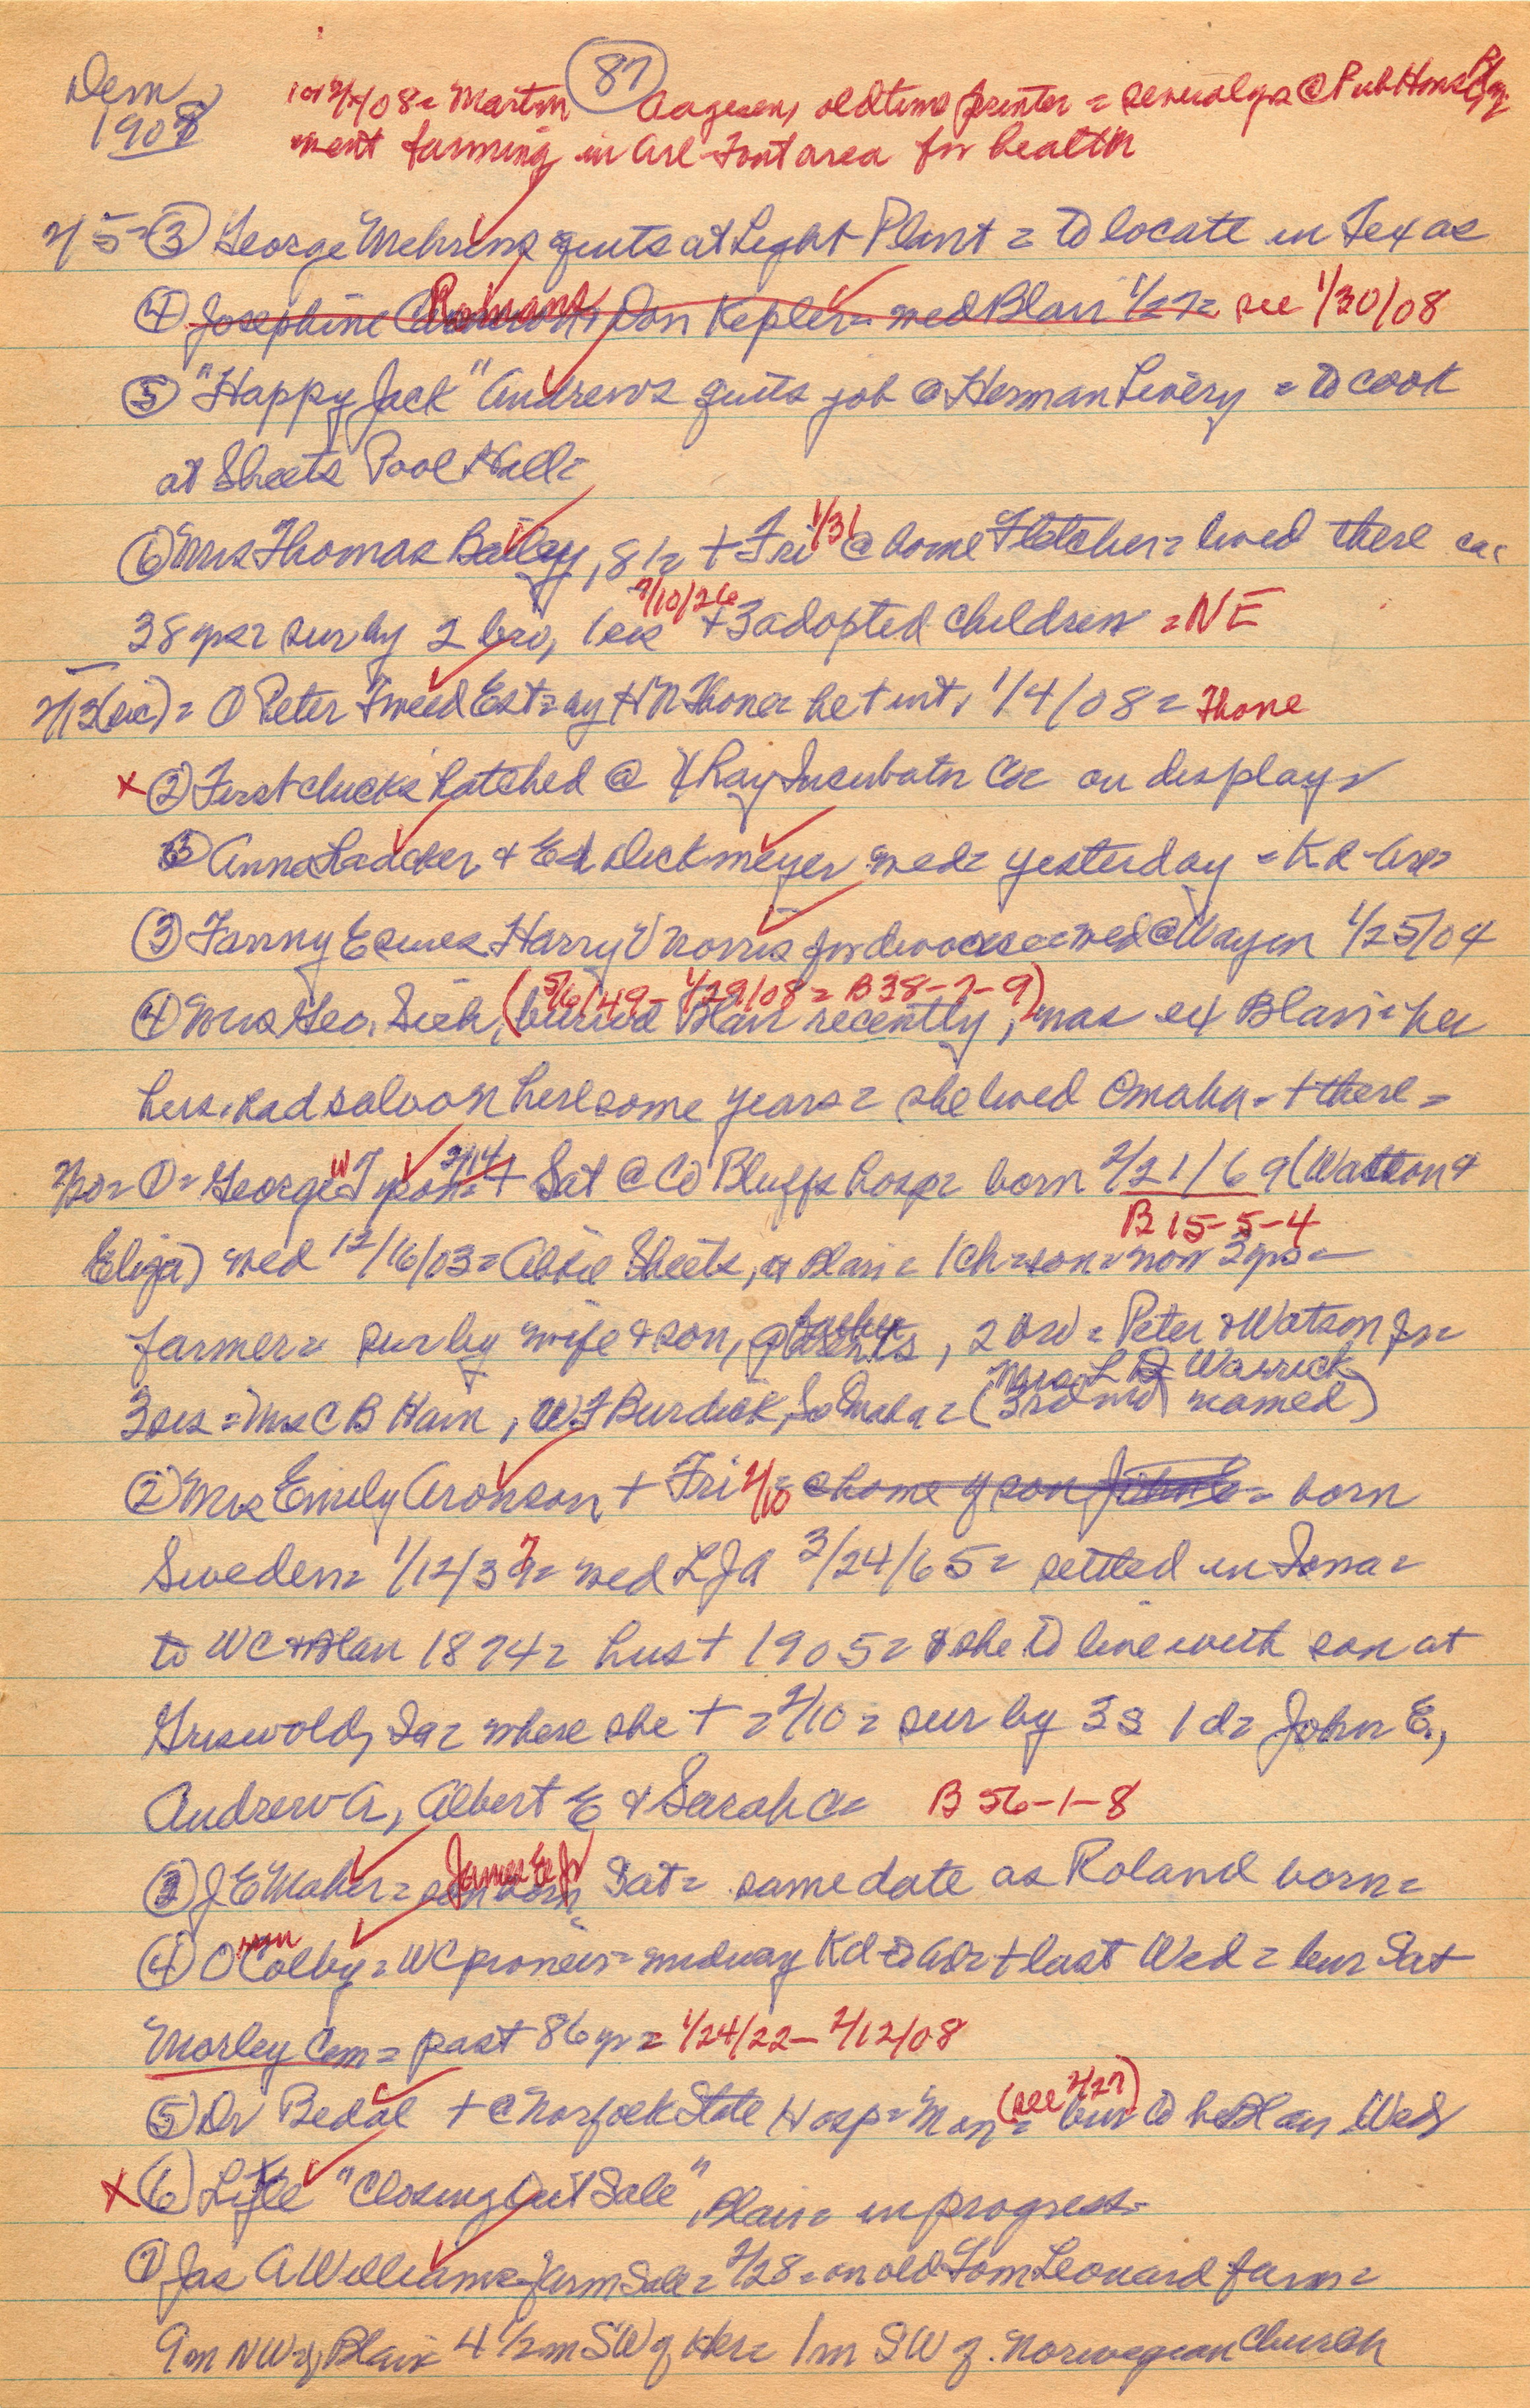 Dem 1908
87
Martin Aagesen, oldtime printer = several yrs @ Pub House
ment farming in Arl-Font area for health
2/5 = ③ George Mehrens quits at Light Plant = to locate in Texas
④ Josephine Don Kepler = wed Blair 1/27 = see 1/30/08
⑤ "Happy Jack" Andrews quits job @ Herman Livery = to cook
at Sheets Pool Hall =
⑥ Mrs Thomas Bailey, 81 = + Fri 1/31 @ home Fletcher = lived there ca
38 yrs = sur by 2 bro, 1 sis + 3 adopted children = NE
2/13 (sic) = ① Peter Tweed Est = by H N Thone = het int, 1/4/08 = Thone
x ② First chicks hatched @ X Ray Incubator Co = on display
Anna Ladeker & Ed Dickmeyer wed = yesterday = Kd-Arl =
③ Fanny E sues Harry V Norris for divorce = wed @ Wayen 1/25/04
④ Mrs Geo. Sick, (buried Blair recently, was ex Blair = her
(5/6/49 - 1/29/08 = B 38-7-9)
hus. had saloon here some years = she lived Omaha = + there =
2/20 = ① = George W Tyson = + Sat @ Co Bluffs hosp = born 2/21/69 (Watson &
B 15-5-4
Eliza) wed 12/16/03 = Abbie Sheets, @ Blair = 1 ch = son = now 3 yrs =
farmer = sur by wife & son, 2 bro = Peter & Watson Jr =
Mrs L D Warrick
3 sis = Mrs C B Ham, W F Burdick, So Omaha = (3rd not named)
② Mrs Emily Aronson + Fri 2/10 @ home of son John E = born
Sweden = 1/12/37 = wed L J A 3/24/65 = settled in Iowa =
to WC Blair 1874 = hus + 1905 = she to live with son at
Griswold, Ia = where she + = 2/10 = sur by 3 s 1 d = John E.,
Andrew A, Albert E & Sarah C = B 56-1-8
③ J E Maher = son born Sat = same date as Roland born =
James E Jr
④ O Colby = WC pioneer = midway Kd to Arl = + last Wed = bur Sat
Morley Cem = past 86 yr = 1/24/22 - 2/12/08
⑤ Dr Bedal + @ Norfolk State Hosp = Mon = (see 2/27) bur to be Blair Wed
x ⑥ Lytle "Closing Out Sale" Blair = in progress =
⑦ Jas A Williams = farm Sale = 2/28 = on old Tom Leonard farm =
9 m NW of Blair 4 1/2 m SW of Her = 1 m SW of Norwegian Church